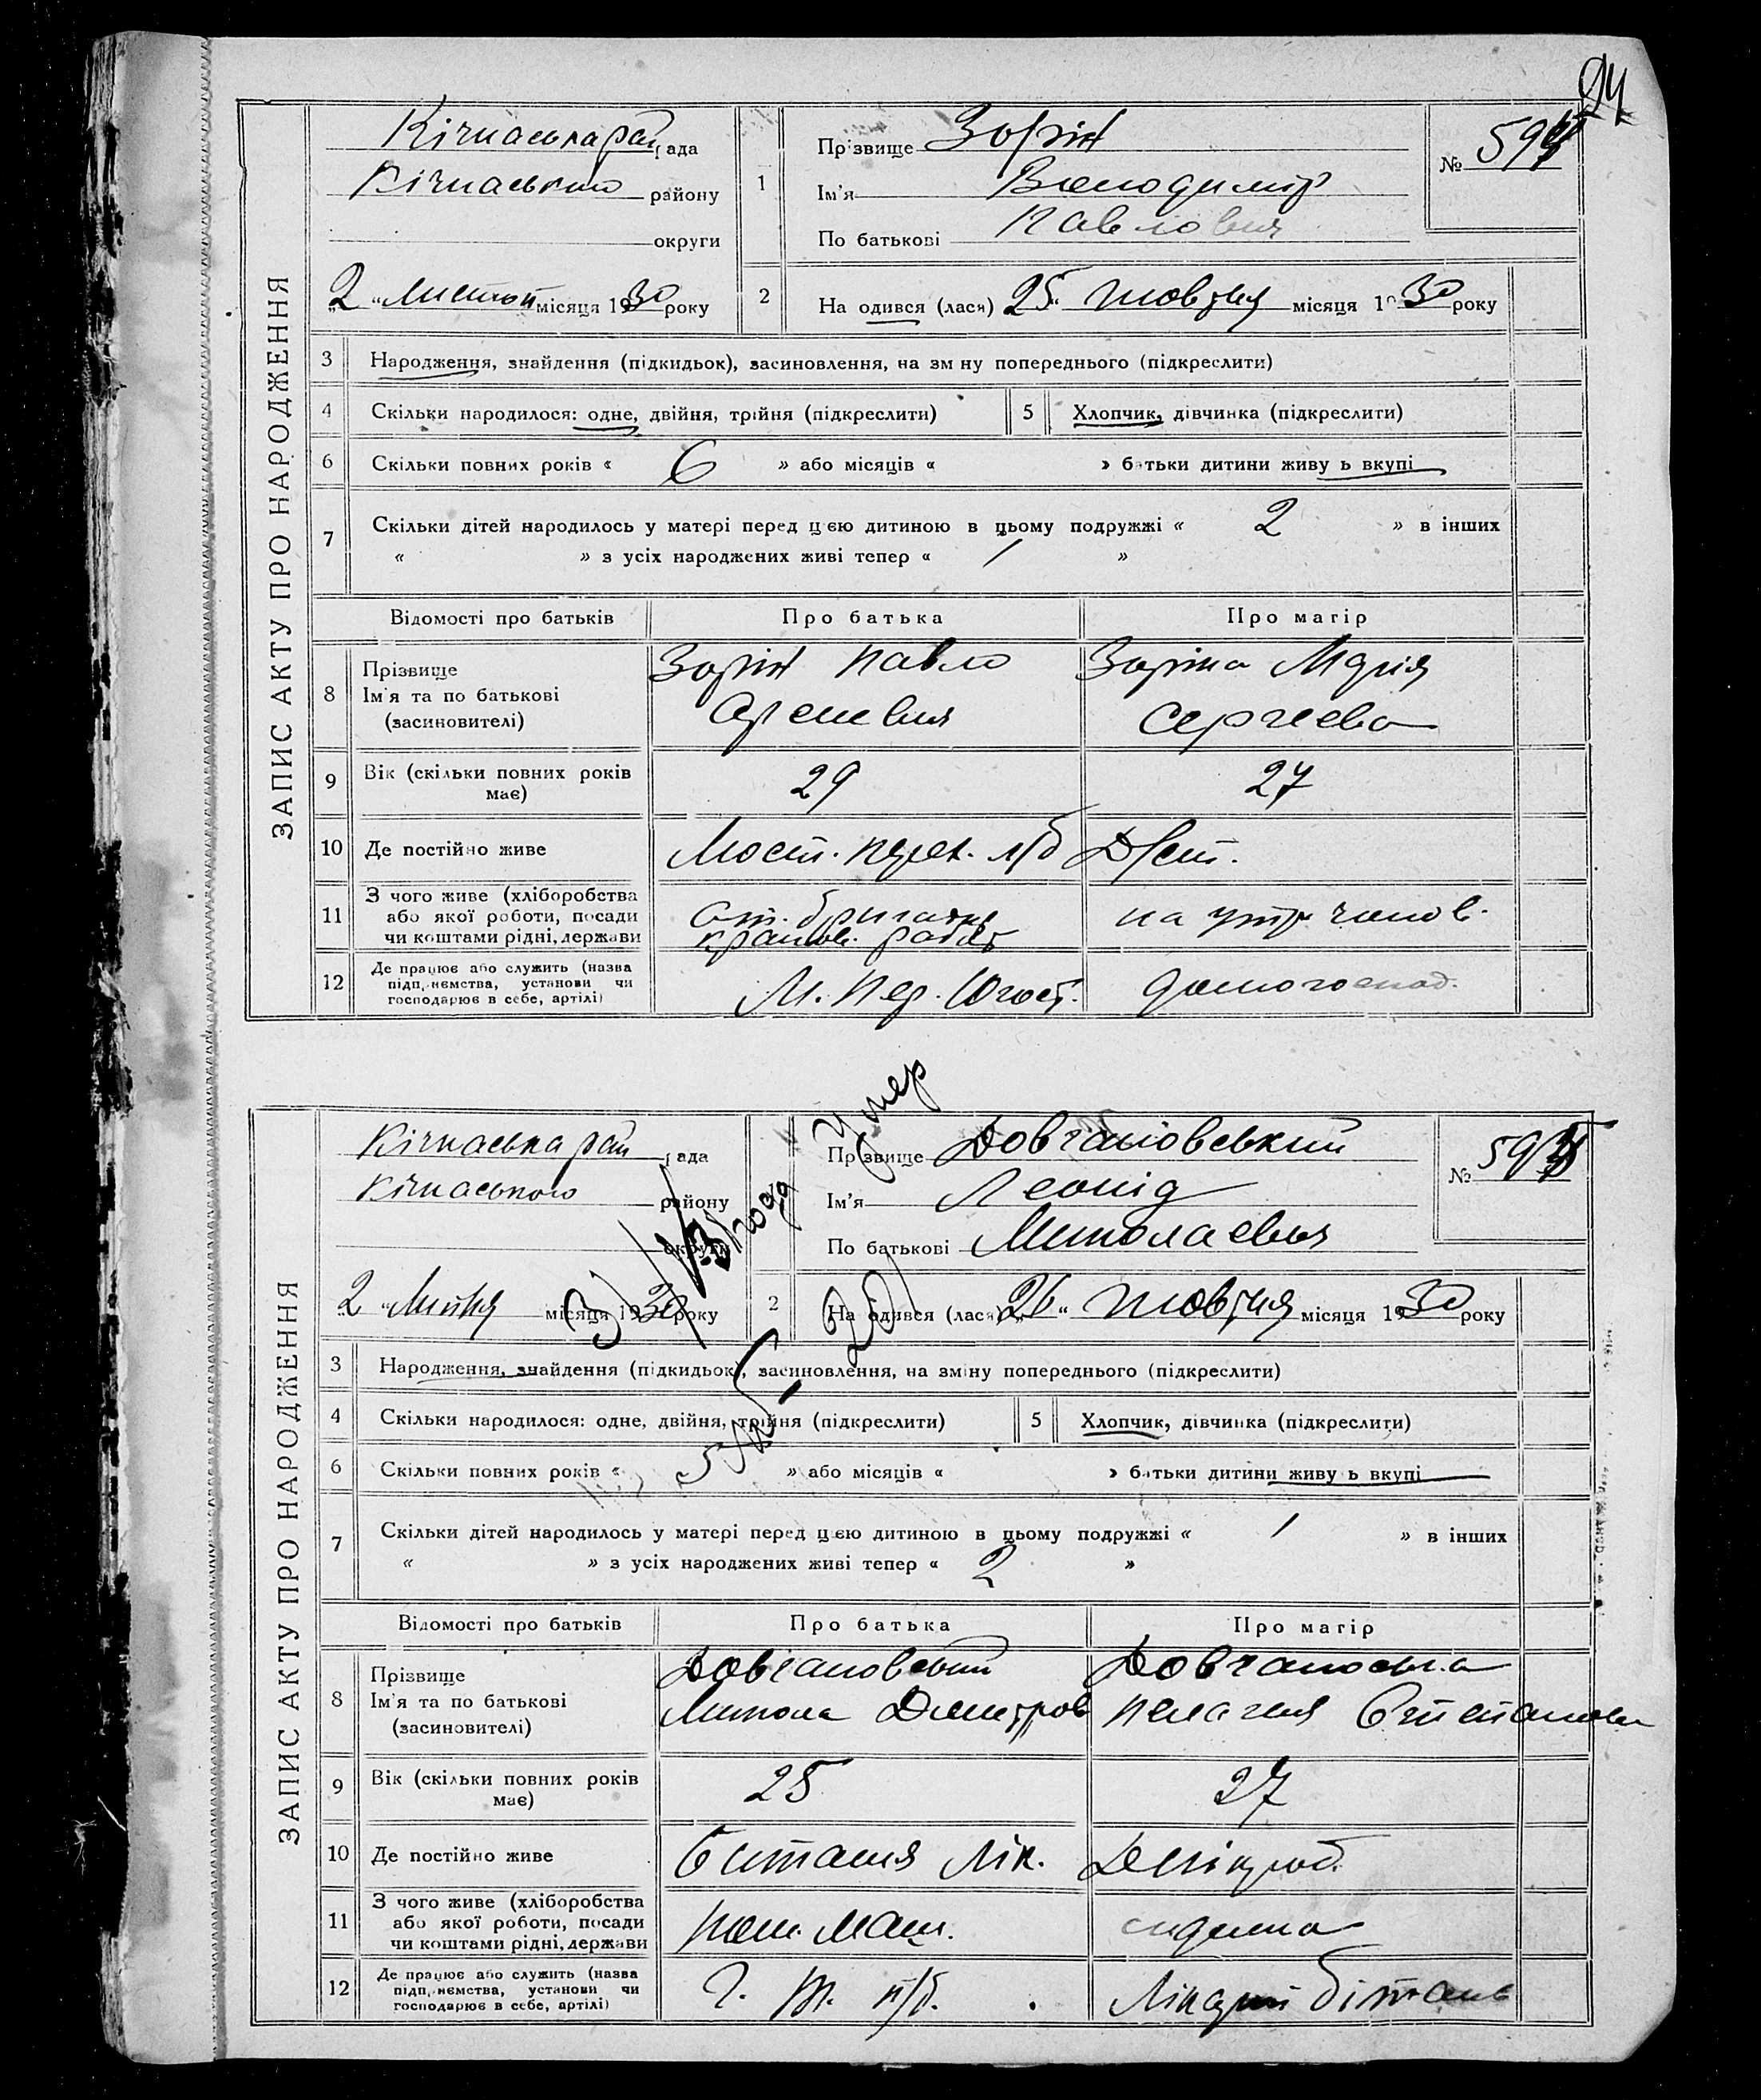 94
ЗАПИС АКТУ ПРО НАРОДЖЕННЯ
Кічкаська рай рада
Кічкаського району
округи
"2" Листоп місяця 1930 року
1
Прізвище Зорін
Ім'я Володимір
По батькові Павлович
№ 594
2
На одився (лася) "25" жовтня місяця 1930 року
3 Народження, знайдення (підкидьок), засиновлення, на зм ну попереднього (підкреслити)
4 Скільки народилося: одне, двійня, трійня (підкреслити)
5 Хлопчик, дівчинка (підкреслити)
6 Скільки повних років « 6 » або місяців « » батьки дитини живу ь вкупі
7 Скільки дітей народилось у матері перед цею дитиною в цьому подружжі « 2 » в інших
« » з усіх народжених живі тепер « 1 »
Відомості про батьків Про батька Про матір
8 Прізвище Ім'я та по батькові (засиновителі)
Зорін Павло
Зоріна Марія
Сергеева
9 Вік (скільки повних років має) 29 27
10 Де постійно живе Мост. л/б
11 З чого живе (хліборобства або якої роботи, посади чи коштами рідні, держави
ст. бригадир
на утр. чолов.
12 Де працює або служить (назва підп, иємства, установи чи господарює в себе, артілі)
М. Пер.
домогоспод.
ЗАПИС АКТУ ПРО НАРОДЖЕННЯ
Кічкаська рай рада
Кічкаського району
округи
"2" місяця 1930 року
Умер
Прізвище Довгановський
Ім'я Леонід
По батькові Миколаевич
№ 595
2
На одився (лася) "26" жовтня місяця 1930 року
3 Народження, знайдення (підкидьок), засиновлення, на зміну попереднього (підкреслити)
4 Скільки народилося: одне, двійня, трійня (підкреслити)
5 Хлопчик, дівчинка (підкреслити)
6 Скільки повних років « » або місяців « » батьки дитини живу ь вкупі
7 Скільки дітей народилось у матері перед цею дитиною в цьому подружжі « 1 » в інших
« » з усіх народжених живі тепер « 2 »
Відомості про батьків Про батька Про матір
8 Прізвище Ім'я та по батькові (засиновителі)
Довгановський
Микола Дмитров
Довгановська
Пелагея Степанова
9 Вік (скільки повних років має) 25 27
10 Де постійно живе Лік.
11 З чого живе (хліборобства або якої роботи, посади чи коштами рідні, держави
пом. маш.
сиделка
12 Де працює або служить (назва підп, иємства, установи чи господарює в себе, артілі)